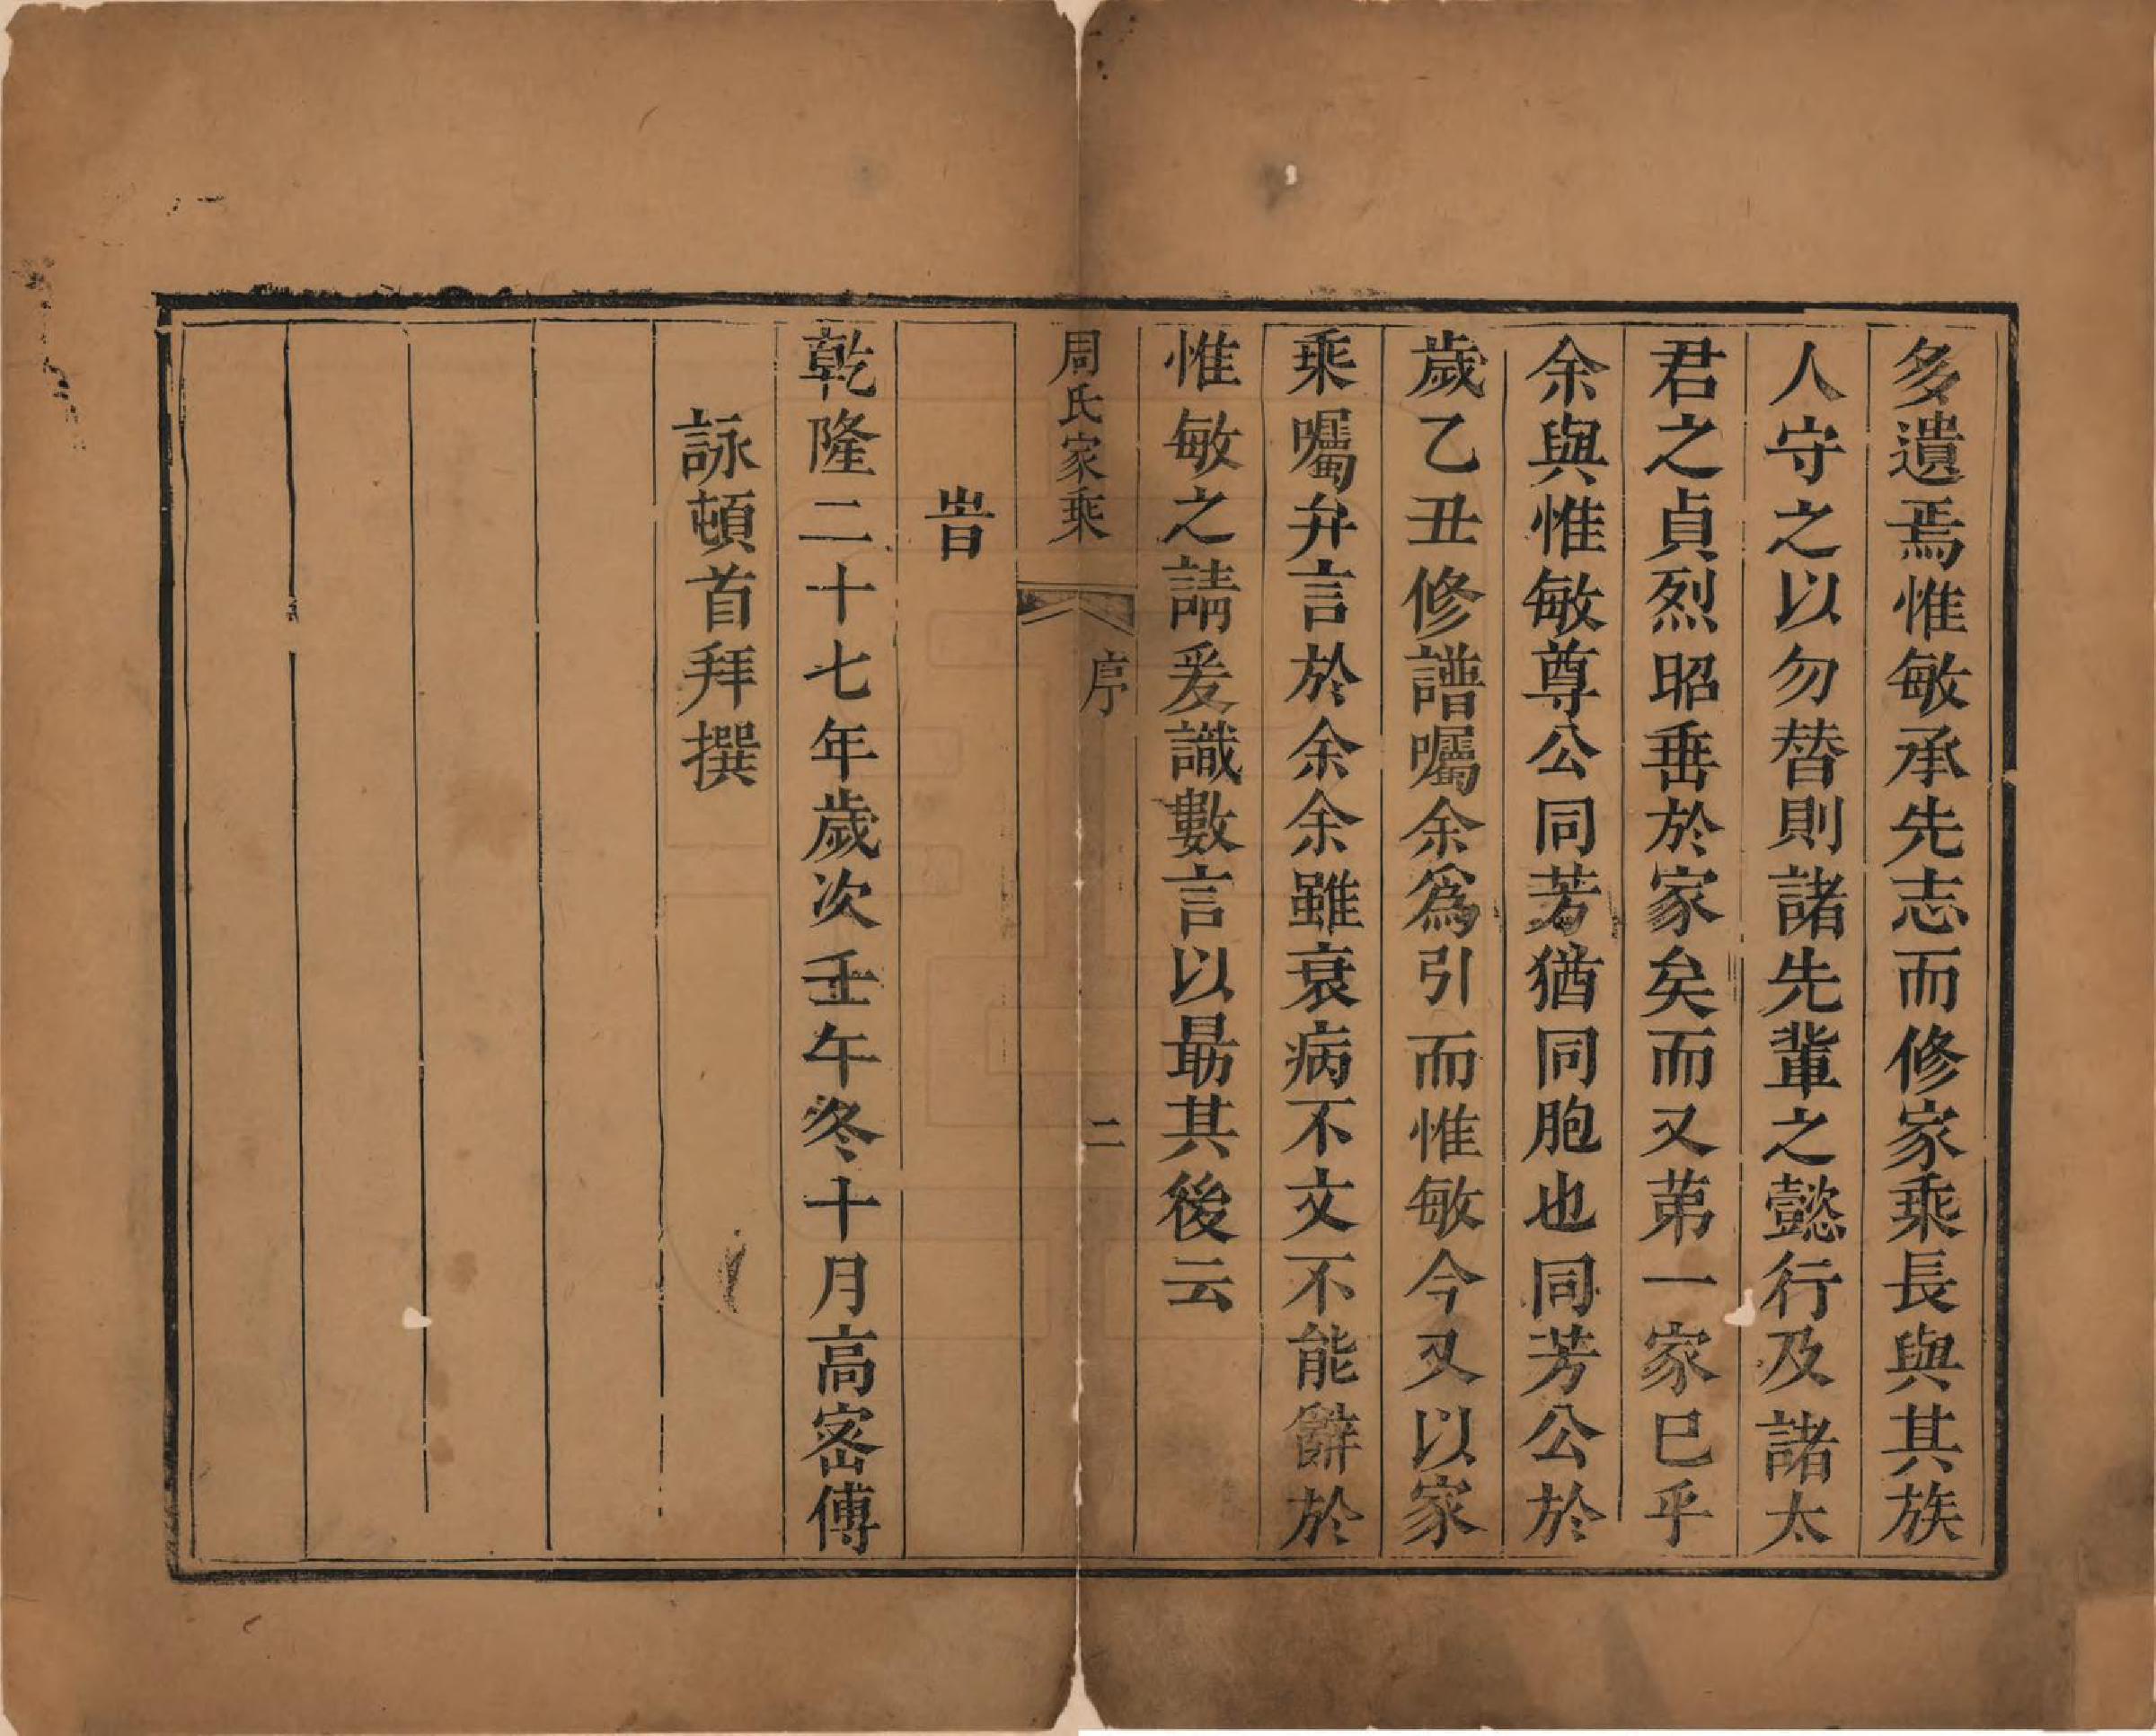 多遺焉惟敏承先志而修家乘長與其族
人守之以勿替則諸先輩之懿行及諸太
君之貞烈昭垂於家矣而又苐一家巳乎
余與惟敏尊公同芳猶同胞也同芳公於
歲乙丑修譜囑余爲引而惟敏今又以家
乘囑弁言於余余雖衰病不文不能辭於
惟敏之請爰識數言以勗其後云
周氏家乘 序 二
旹
乾隆二十七年歲次壬午冬十月高宻傅
詠頓首拜撰